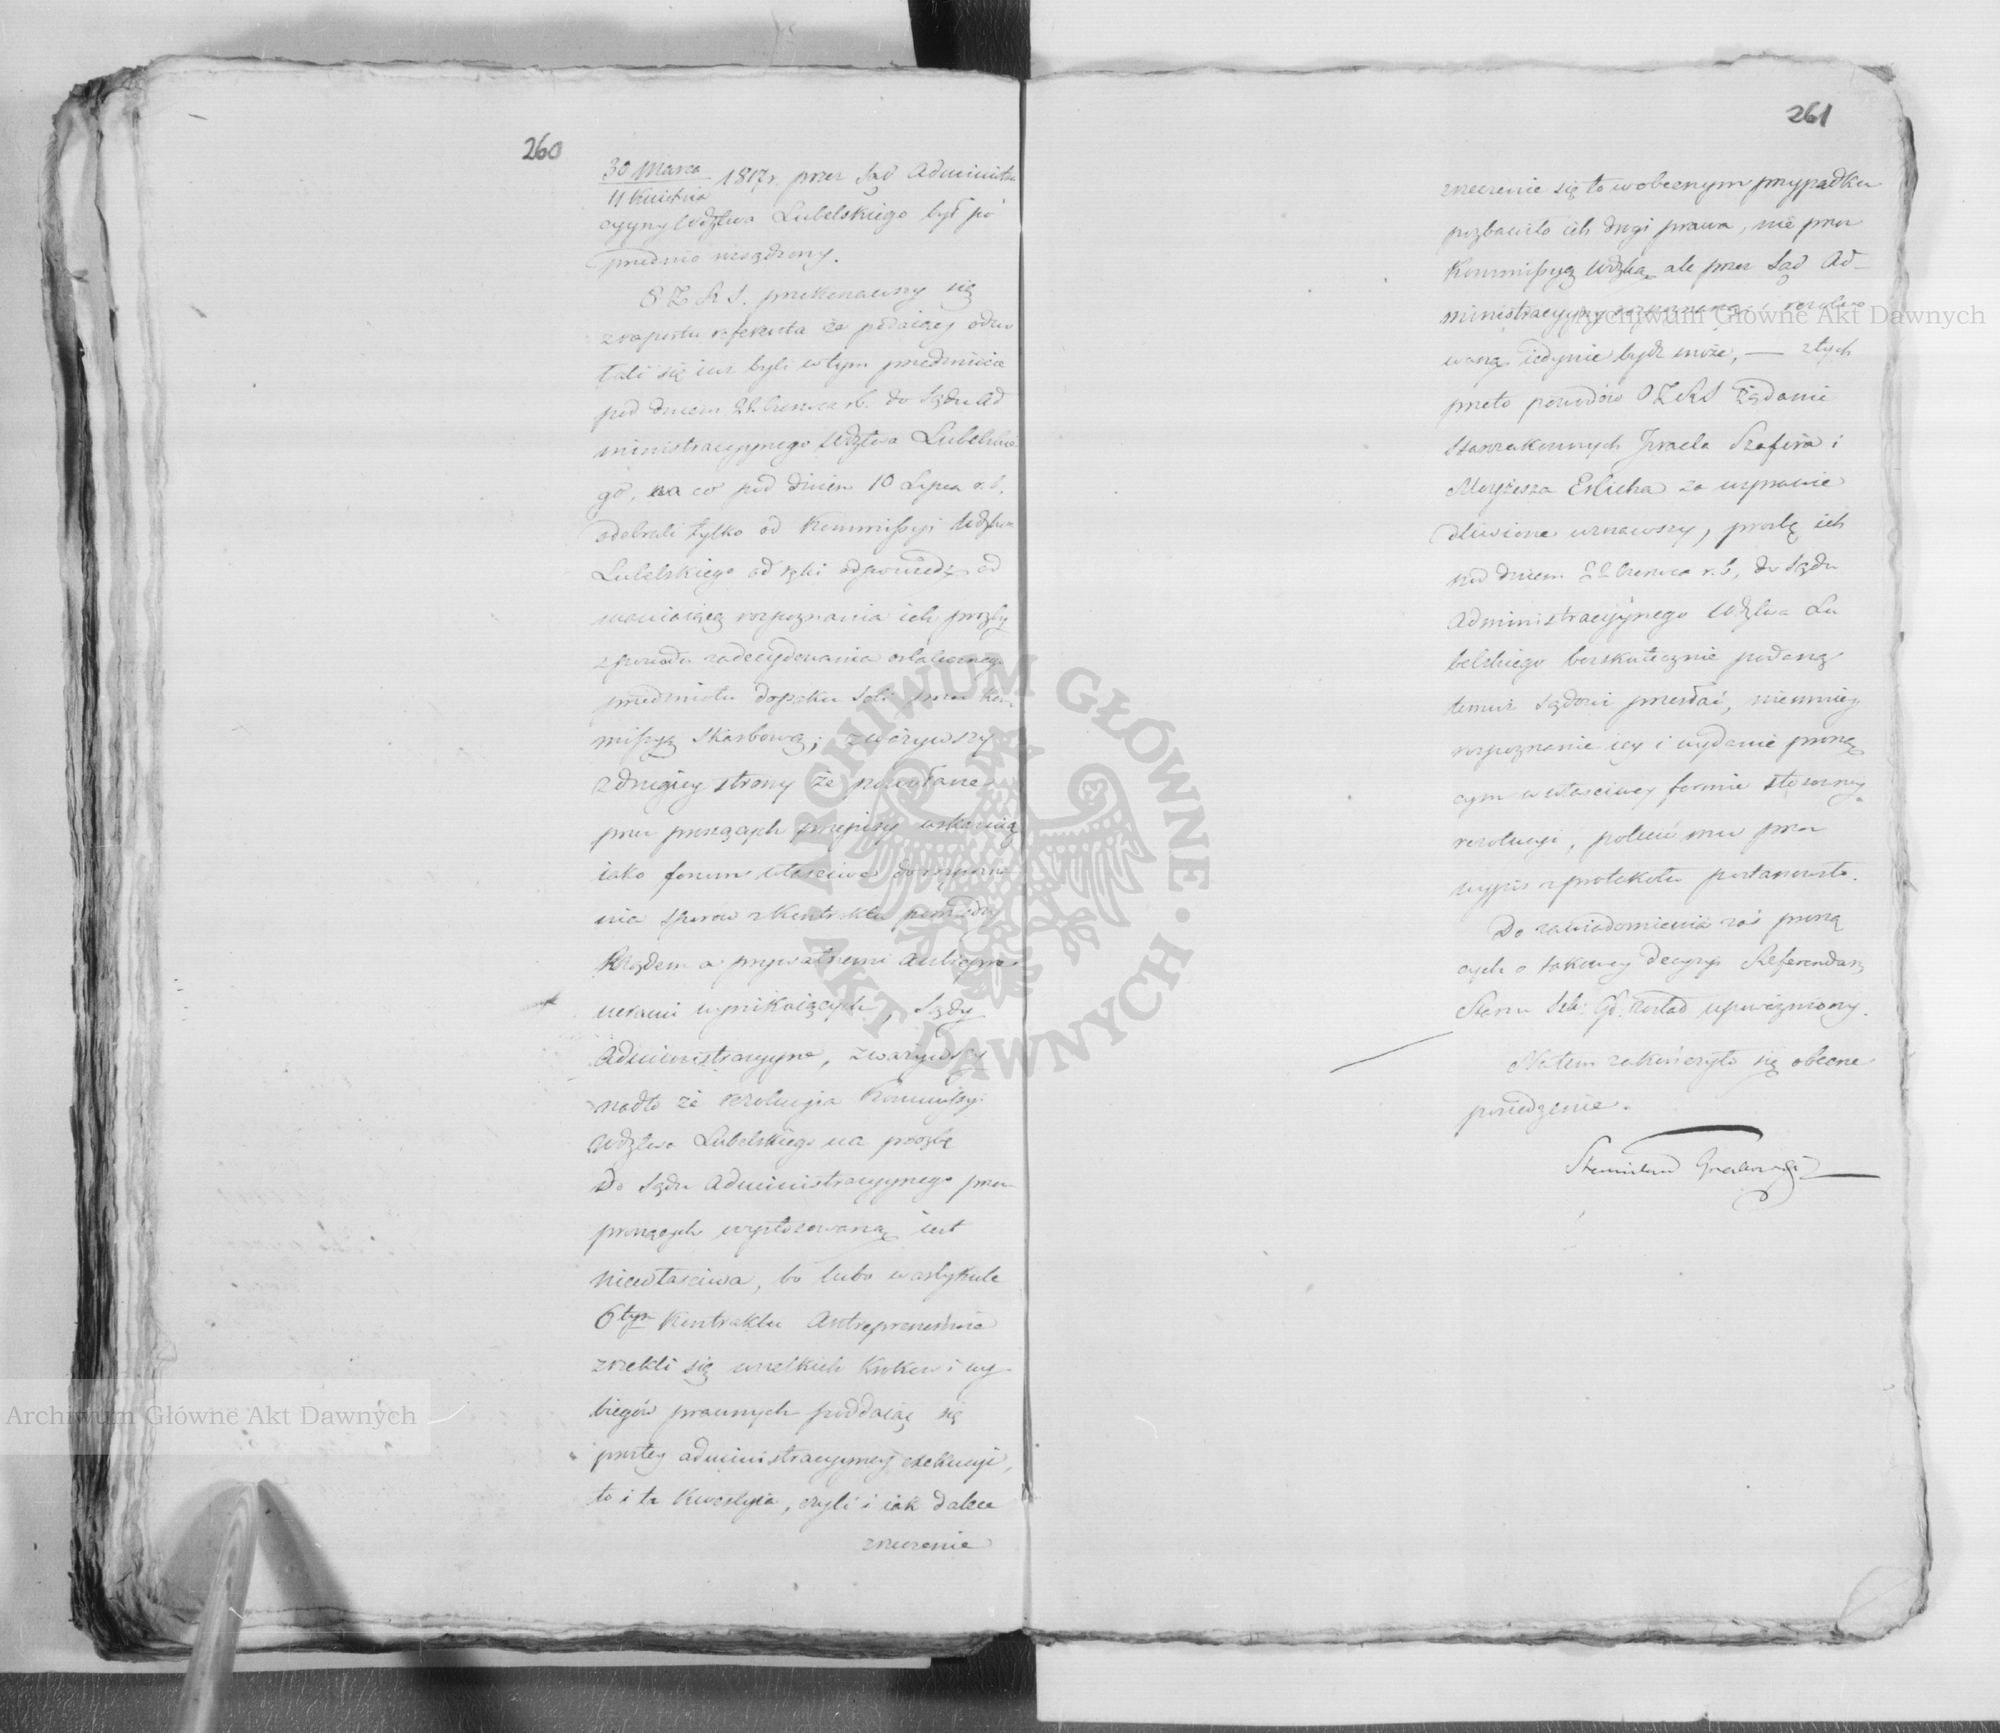 260
30 Marca
11 Kwietnia
1817 r. przez Sąd Administra
cyyny Wdztwa Lubelskiego był po
przednio urządzony.
przekonawszy się
z raportu referenta że podaiący odwo
łali się iuż byli w tym przedmiocie
pod dniem Czerwca r.b. do Sądu Ad
ministracyynego Wdztwa Lubelskie
go, na co pod dniem 10 Lipca r.b.
odebrali tylko od Kommissyi Wdztwa
Lubelskiego od ręki odpowiedź od
mawiaiącą rozpoznania ich prozby
z powodu zadecydowania ostatecznego
przedmiotu dopału Soli przez Kom
missyą Skarbową; zważywszy
z drugiey strony że powołane
przez proszących przepisy wskazuią
iako forum właściwe do rozpozna
nia sporów z Kontraktu pomiędzy
Rządem a prywatnemi Antrepre
nerami wynikaiących, Sądy
Administracyyne, zważywszy
nadto że rezolucyia Kommissyi
Wdztwa Lubelskiego na prozbę
do Sądu Administracyynego przez
proszących wystosowaną iest
niewłaściwa, bo lubo w artykule
6tym Kontraktu Antreprenerowie
zrzekli się wszelkich kroków i wy
biegów prawnych poddaiąc się
prostey administracyyney exekucyi,
to i ta kwestyia, czyli i iak dalece
zrzeczenie
261
zrzeczenie się to w obecnym przypadku
pozbawiło ich drogi prawa, nie przez
Kommissyą Wdzką ale przez Sąd Ad-
ministracyyny rozpoznaną i rezolwo
waną iedynie bydź może, — z tych
przeto powodów żądanie
Starozakonnych Izraela Szafira i
Moyżesza Erlicha za usprawie
dliwione uznawszy, prozbę ich
pod dniem 22 Czerwca r.b. do Sądu
Administracyynego Wdztwa Lu
belskiego bezskutecznie podaną
temuż Sądowi przesłać, niemniey
rozpoznanie iey i wydanie proszą
cym w właściwey formie stosowney
rezolucyi, polecić mu przez
wypis z protokołu postanowiła.
Do zawiadomienia zaś proszą
cych o takowey decyzyi Referendarz
Stanu został upoważniony.
Na tem zakończyło się obecne
posiedzenie.
Stanisław Grabowski
ARCHIWUM GŁÓWNE · AKT DAWNYCH ·
Archiwum Główne Akt Dawnych
Archiwum Główne Akt Dawnych